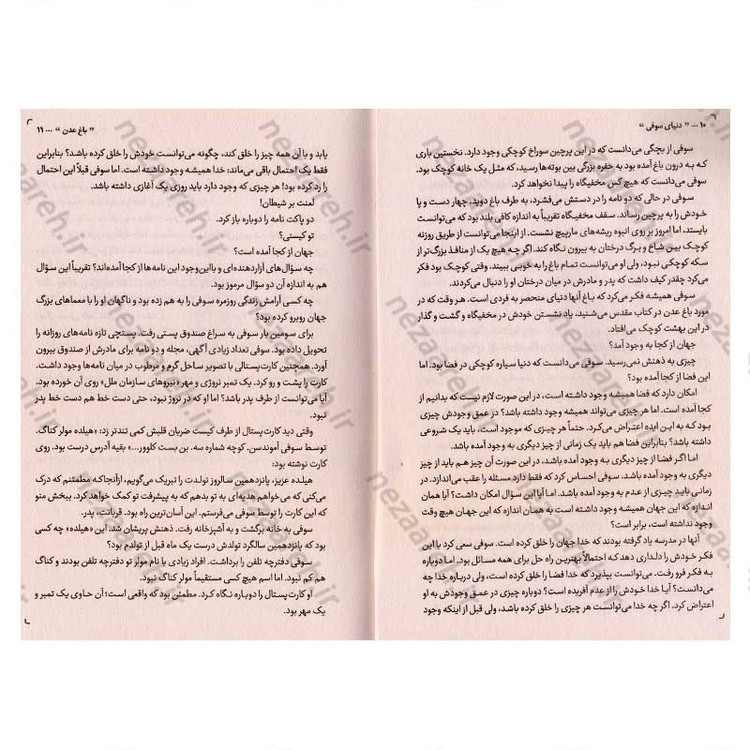 ۱۰ ... " دنیای سوفی "
سوفی از بچگی می‌دانست که در این پرچین سوراخ کوچکی وجود دارد. نخستین باری
که به درون باغ آمده بود به حفره بزرگی بین بوته‌ها رسید، که مثل یک خانه کوچک بود.
سوفی می‌دانست که هیچ کس مخفیگاه را پیدا نخواهد کرد.
سوفی در حالی که دو نامه را در دستش می‌فشرد، به طرف باغ دوید، چهار دست و پا
خودش را به پرچین رساند. سقف مخفیگاه تقریباً به اندازه کافی بلند بود که می‌توانست
بایستد، اما امروز بر روی انبوه ریشه‌های مارپیچ نشست. از اینجا می‌توانست از طریق روزنه
کوچک بین شاخ و برگ درختان به بیرون نگاه کند. اگر چه هیچ یک از منافذ بزرگ‌تر از
سکه کوچکی نبود، ولی او می‌توانست تمام باغ را به خوبی ببیند. وقتی کوچک بود فکر
می‌کرد چقدر کیف داشت که پدر و مادرش در میان درختان او را دنبال می‌کردند.
سوفی همیشه فکر می‌کرد که باغ آنها دنیای منحصر به فردی است. هر وقت که در
مورد باغ عدن در کتاب مقدس می‌شنید، یاد نشستن خودش در مخفیگاه و گشت و گذار
در این بهشت کوچک می‌افتاد.
جهان از کجا به وجود آمد؟
چیزی به ذهنش نمی‌رسید. سوفی می‌دانست که دنیا سیاره کوچکی در فضا بود. اما
این فضا از کجا آمده بود؟
امکان دارد که فضا همیشه وجود داشته است، در این صورت لازم نیست که بدانیم از
کجا آمده است. اما هر چیزی می‌تواند همیشه وجود داشته باشد؟ در عمق وجودش چیزی
بود که به این ایده اعتراض می‌کرد. حتماً هر چیزی که موجود است، باید یک شروعی
داشته باشد؟ بنابراین فضا هم باید یک زمانی از چیز دیگری به وجود آمده باشد.
اما اگر فضا از چیز دیگری به وجود آمده باشد، در این صورت آن چیز هم باید از چیز
دیگری به وجود آمده باشد. سوفی احساس کرد که فقط دارد مسئله را عقب می‌اندازد. در
زمانی باید چیزی از عدم به وجود آمده باشد. اما آیا این سؤال امکان داشت؟ آیا همان
اندازه که این جهان همیشه وجود داشته است به همان اندازه که این جهان هیچ وقت
وجود نداشته است، برابر است؟
آنها در مدرسه یاد گرفته بودند که خدا جهان را خلق کرده است. سوفی سعی کرد با این
فکر خودش را دلداری دهد که احتمالاً بهترین راه حل برای همه مسائل بود. اما دوباره
به فکر فرو رفت. می‌توانست بپذیرد که خدا فضا را خلق کرده است، ولی درباره خدا چه
می‌دانست؟ آیا خدا خودش را از عدم آفریده است؟ دوباره چیزی در عمق وجودش به او
اعتراض کرد. اگر چه خدا می‌توانست هر چیزی را خلق کرده باشد، ولی قبل از اینکه وجود
" باغ عدن " ... ۱۱
یابد و با آن همه چیز را خلق کند، چگونه می‌توانست خودش را خلق کرده باشد؟ بنابراین
فقط یک احتمال باقی می‌ماند؛ خدا همیشه وجود داشته است. اما سوفی قبلاً این احتمال
را رد کرده بود! هر چیزی که وجود دارد باید روزی یک آغازی داشته باشد.
لعنت بر شیطان!
دو پاکت نامه را دوباره باز کرد.
تو کیستی؟
جهان از کجا آمده است؟
چه سؤال‌های آزاردهنده‌ای و با این وجود این نامه‌ها از کجا آمده‌اند؟ تقریباً این سؤال
هم به اندازه آن دو سؤال مرموز بود.
چه کسی آرامش زندگی روزمره سوفی را به هم زده بود و ناگهان او را با معماهای بزرگ
جهان روبرو کرده بود؟
برای سومین بار سوفی به سراغ صندوق پستی رفت. پستچی تازه نامه‌های روزانه را
تحویل داده بود. سوفی تعداد زیادی آگهی، مجله و دو نامه برای مادرش از صندوق بیرون
آورد. همچنین کارت‌پستالی با تصویر ساحل گرم و مرطوب در میان نامه‌ها وجود داشت.
کارت را پشت و رو کرد. یک تمبر نروژی و مهر «نیروهای سازمان ملل» روی آن خورده بود.
آیا می‌توانست از طرف پدر باشد؟ اما او که در نروژ نبود، حتی دست خط هم دست خط پدر
نبود.
وقتی دید کارت‌پستال از طرف کیست ضربان قلبش کمی تندتر زد: «هیلده مولر کناگ.
توسط سوفی آموندسن. کوچه شماره سه. بن بست کلوور...» بقیه آدرس درست بود. روی
کارت نوشته بود:
هیلده عزیز، پانزدهمین سالروز تولدت را تبریک می‌گویم، ازآنجاکه مطمئنم که درک
می‌کنی که می‌خواهم هدیه‌ای به تو بدهم که به پیشرفت تو کمک خواهد کرد. ببخش منو
که این کارت را توسط سوفی می‌فرستم. این آسان‌ترین راه بود. قربانت، پدر.
سوفی به خانه برگشت و به آشپزخانه رفت. ذهنش پریشان شد. این «هیلده» چه کسی
بود که پانزدهمین سالگرد تولدش درست یک ماه قبل از تولدم بود؟
سوفی دفترچه تلفن را برداشت. افراد زیادی با نام مولر تو دفترچه تلفن بودند و کناگ
هم کم نبود. اما اسم هیچ کسی مستقیماً مولر کناگ نبود.
او کارت‌پستال را دوباره نگاه کرد. مطمئن بود که واقعی است؛ آن حاوی یک تمبر و
یک مهر بود.
nezaareh.ir